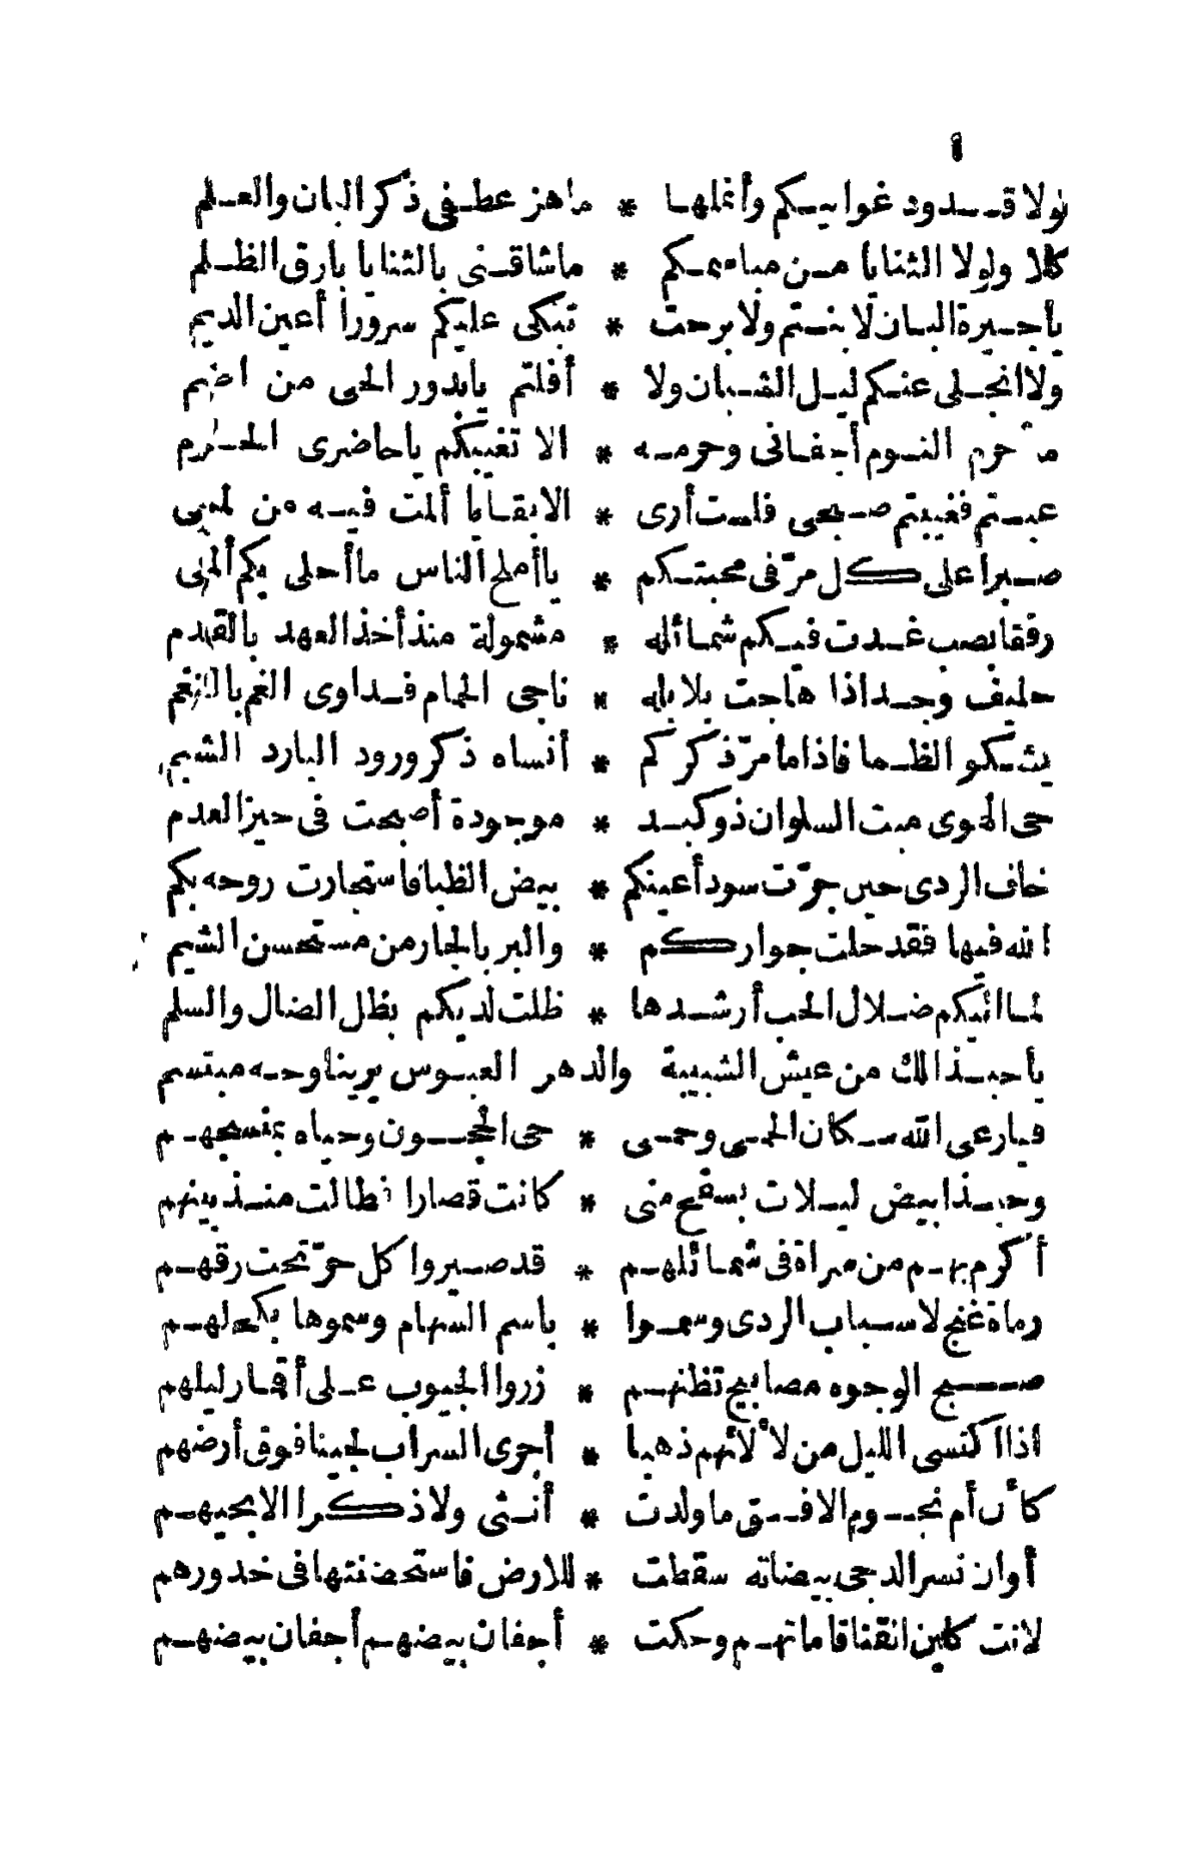 لولا قدود غوانيكم وأنملها * ماهز عطفى ذكر البان والعلم
كلا ولولا الثنايا من مباسمكم * ماشاقنى بالثنايا بارق الظلم
ياجيرة البان لابنتم ولا برحت * تبكى عليكم سرورا أعين الديم
ولا انجلى عنكم ليل الشبان ولا * أفلتم يابدور الحى من اضم
ما حرم النوم أجفانى وحرمه * الا تغيبكم ياحاضرى الحرم
غبتم فغيبتم صبحى فلست أرى * الابقايا ألمت فيه من لممى
صبرا على كل مرّ فى محبتكم * ياأملح الناس ماأحلى بكم ألمى
رفقا بصب غدت فيكم شمائله * مشمولة منذأخذ العهد بالقدم
حليف وجد اذا هاجت بلابله * ناجى الحمام فداوى الغم بالنغم
يشكو الظما فاذا مامرّ ذكركم * أنساه ذكر ورود البارد الشبم
حى الهوى ميت السلوان ذوكبد * موجودة أصبحت فى حيز العدم
خاف الردى حين جرّت سود أعينكم * بيض الظبا فاستجارت روحه بكم
الله فيها فقد حلت جواركم * والبر بالجار من مستحسن الشيم
لما اليكم ضلال الحب أرشدها * ظلت لديكم بظل الضال والسلم
ياحبذا لك من عيش الشبيبة والدهر العبوس يرينا وجه مبتسم
فيارعى الله سكان الحمى وحمى * حى الحجون وحياه بمنسجم
وحبذا بيض ليلات بسفح منى * كانت قصارا فطالت منذ بينهم
أكرم بهم من سراة فى شمائلهم * قد صيروا كل حرّ تحت رقهم
رماة غنج لاسباب الردى وسموا * باسم السهام وسموها بكحلهم
صبح الوجوه مصابيح تظنهم * زروا الجيوب على أقمار ليلهم
اذا اكتسى الليل من لألائهم ذهبا * أجرى السراب لجينا فوق أرضهم
كأن أم نجوم الافق ماولدت * أنثى ولا ذكرا الابحيهم
أوان نسر الدجى بيضاته سقطت * للارض فاستحضنتها فى خدورهم
لانت كلين القنا قاماتهم وحكت * أجفان بيضهم أجفان بيضهم